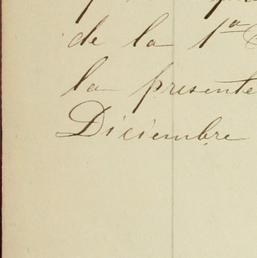 de la 1ª
la presente
Diciembre